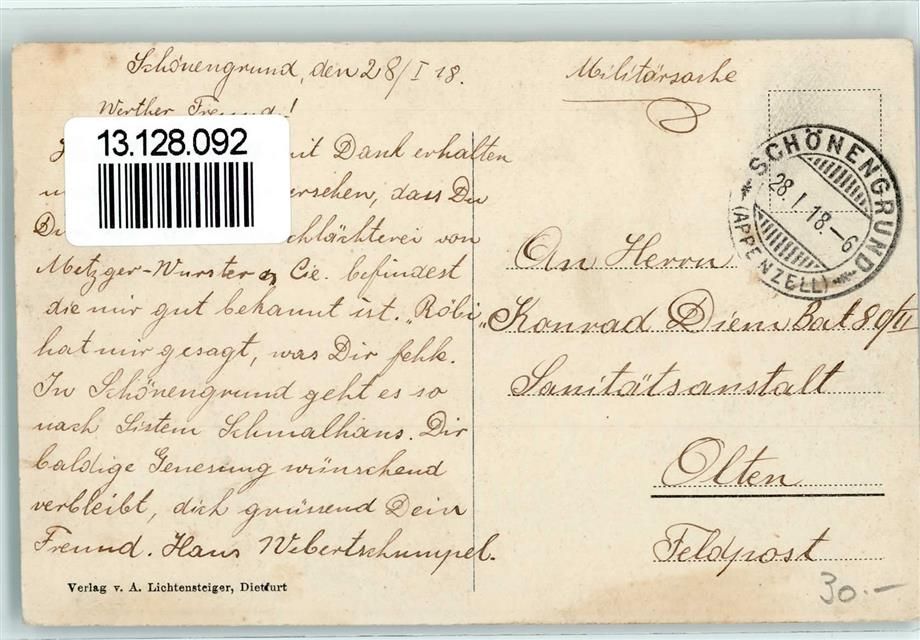 Schönengrund, den 28/I 18.
Werther Freund!
13.128.092
mit Dank erhalten
ersehen, dass Du
chlächterei von
Metzger-Wurster & Cie. befindest
die mir gut bekannt ist. „Röbi“
hat mir gesagt, was Dir fehlt.
In Schönengrund geht es so
nach Sistem Schmalhans. Dir
baldige Genesung wünschend
verbleibt, dich grüssend Dein
Freund. Hans
Verlag v. A. Lichtensteiger, Dietfurt
Militärsache
SCHÖNENGRUND
28. I. 18.–6
(APPENZELL)
An Herrn
Konrad Diem Bat 80/II
Sanitätsanstalt
Olten
Feldpost
30.–